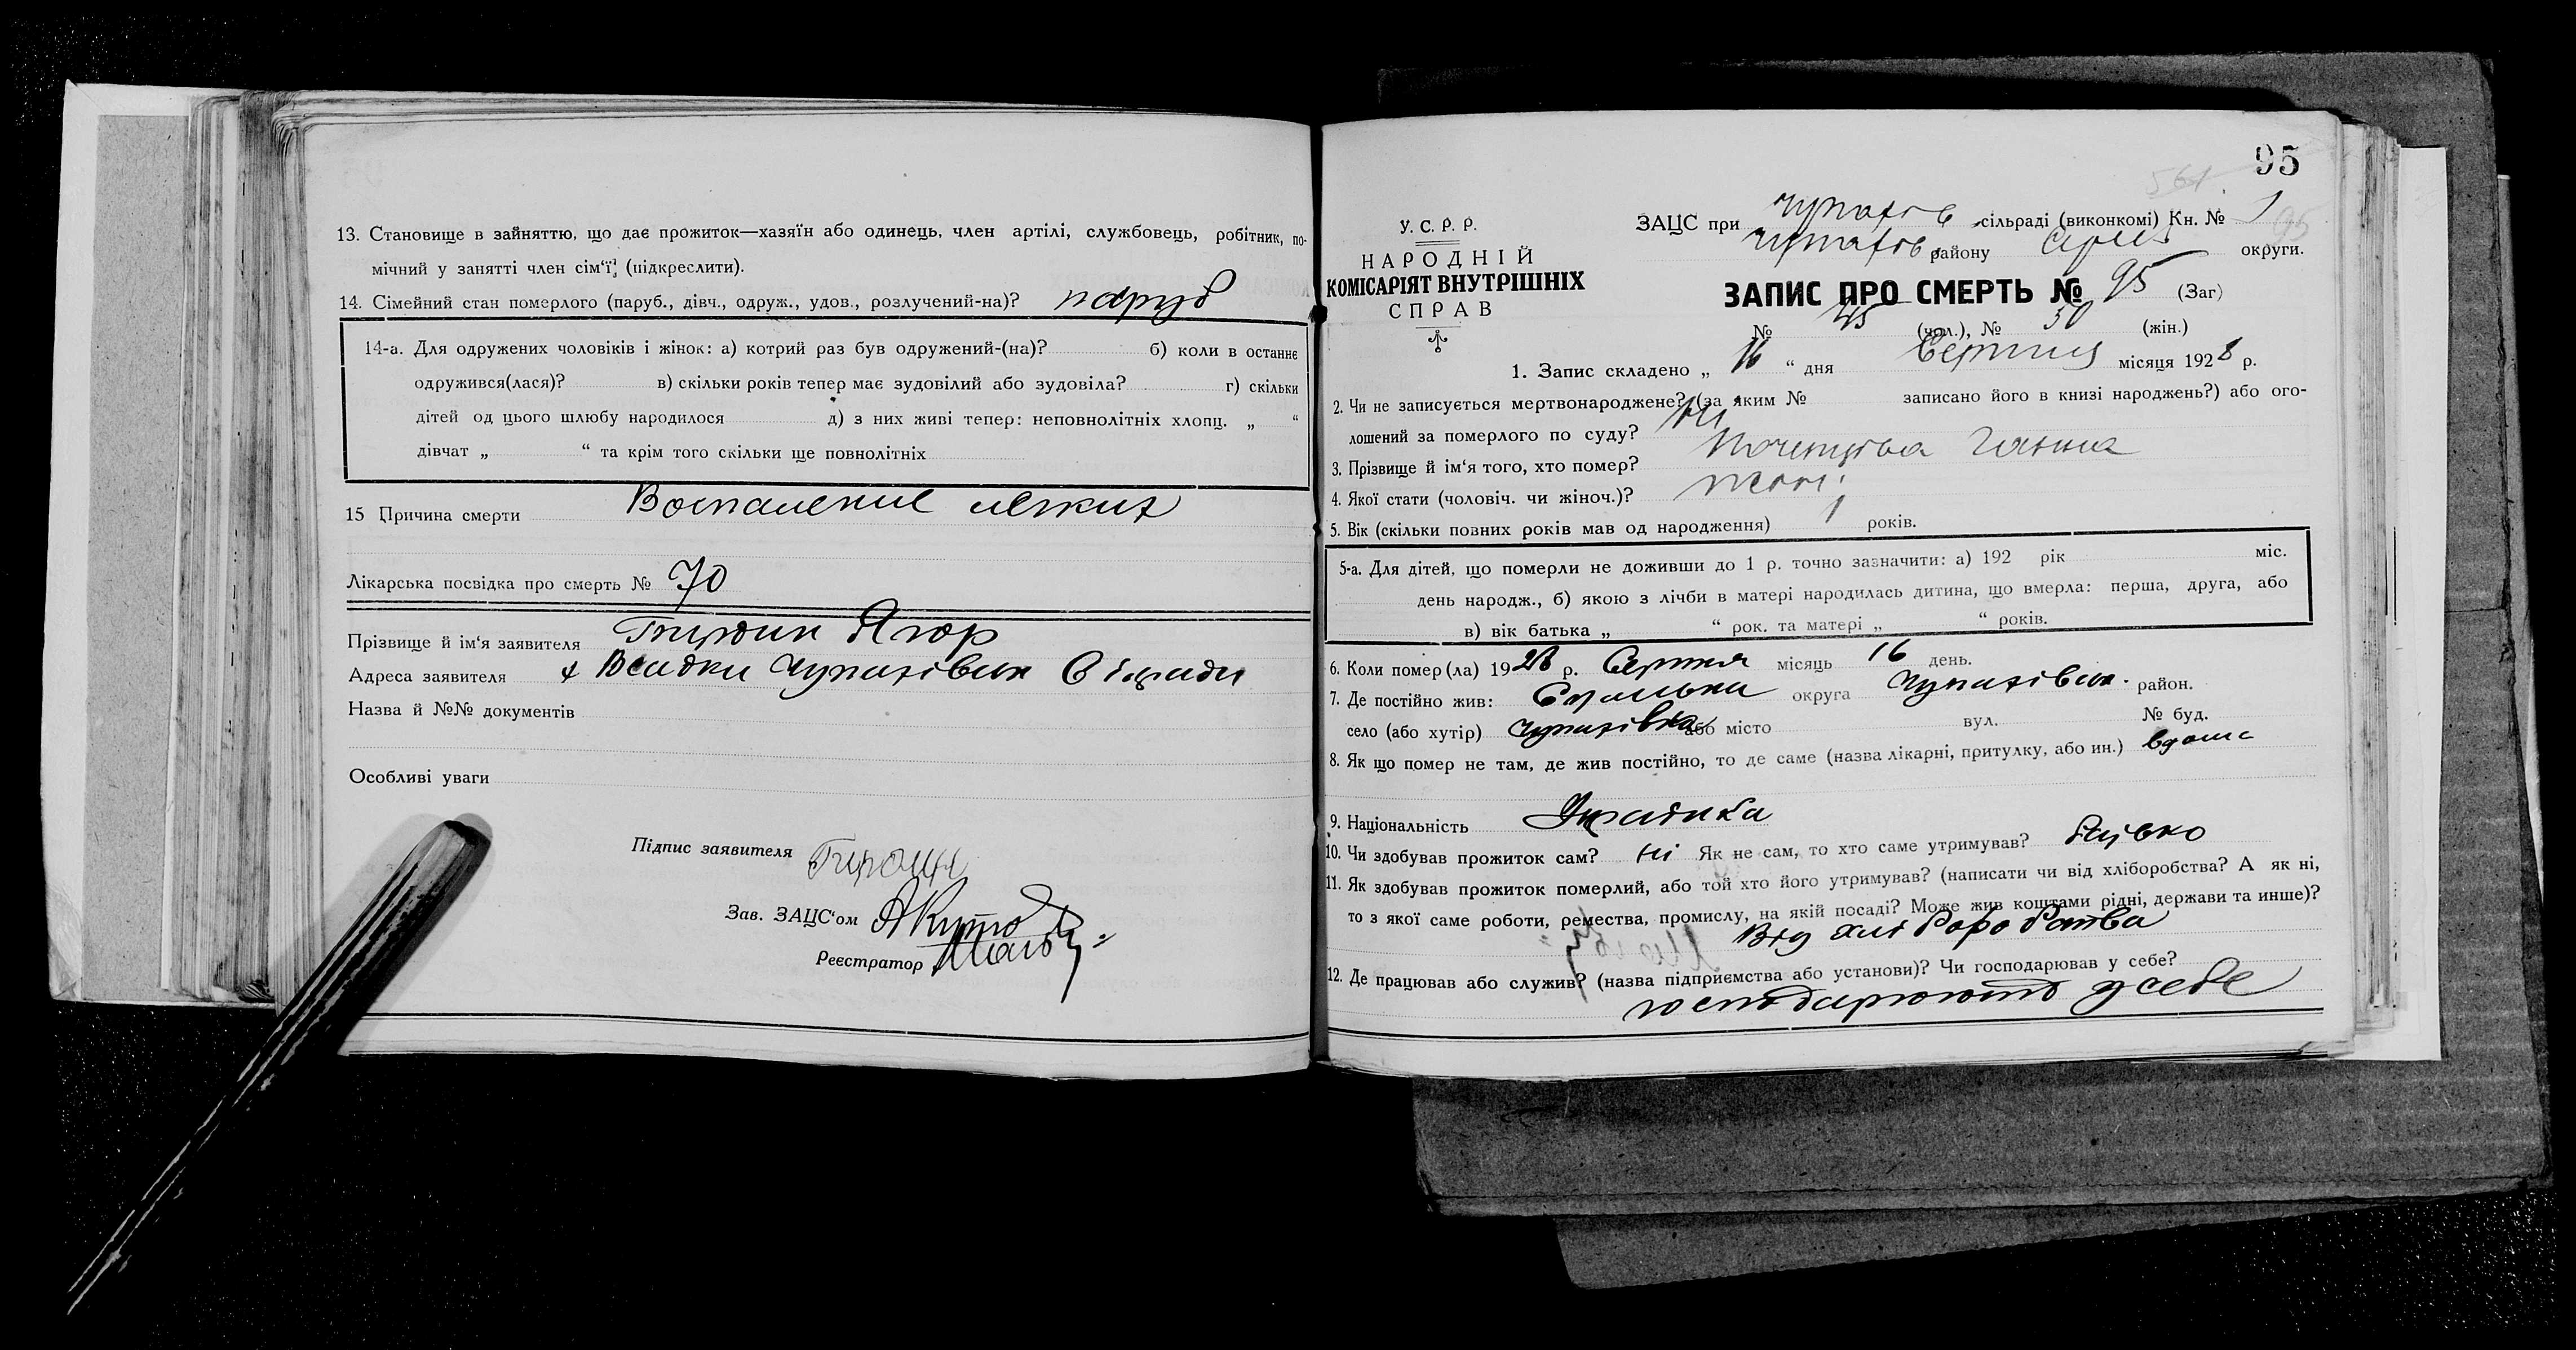 13. Становище в зайняттю, що дає прожиток—хазяїн або одинець, член артілі, службовець, робітник, по-
мічний у занятті член сім'ї, (підкреслити).
14. Сімейний стан померлого (паруб., дівч., одруж., удов., розлучений-на)? паруб
14-а. Для одружених чоловіків і жінок: а) котрий раз був одружений-(на)? б) коли в останнє
одружився(лася)? в) скільки років тепер має зудовілий або зудовіла? г) скільки
дітей од цього шлюбу народилося д) з них живі тепер: неповнолітніх хлопц. „ “
дівчат „ “ та крім того скільки ще повнолітніх
15 Причина смерти Воспаление легких
Лікарська посвідка про смерть № 70
Прізвище й ім'я заявителя Ягор
Адреса заявителя х Чупахівськ Сільради
Назва й №№ документів
Особливі уваги
Підпис заявителя
Зав. ЗАЦС'ом
Реєстратор
95
У. С. Р. Р.
НАРОДНІЙ
КОМІСАРІЯТ ВНУТРІШНІХ
СПРАВ
ЗАЦС при Чупахів сільраді (виконкомі) Кн. № 1
Чупахів району округи.
ЗАПИС ПРО СМЕРТЬ № 95 (Заг)
№ 45 (чол.), № 50 (жін.)
1. Запис складено „ 16 “ дня Серпня місяця 1928 р.
2. Чи не записується мертвонароджене? (за яким № записано його в книзі народжень?) або ого-
лошений за померлого по суду? Ні
3. Прізвище й ім'я того, хто помер? Ганна
4. Якої стати (чоловіч. чи жіноч.)? жін.
5. Вік (скільки повних років мав од народження) 1 років.
5-а. Для дітей, що померли не доживши до 1 р. точно зазначити: а) 192 рік міс.
день народж., б) якою з лічби в матері народилась дитина, що вмерла: перша, друга, або
в) вік батька „ “ рок. та матері „ “ років.
6. Коли помер(ла) 1928 р. Серпня місяць 16 день.
7. Де постійно жив: округа Чупахівськ. район.
село (або хутір) Чупахівка або місто вул. № буд.
8. Як що помер не там, де жив постійно, то де саме (назва лікарні, притулку, або ин.) вдома
9. Національність Україїнка
10. Чи здобував прожиток сам? Ні Як не сам, то хто саме утримував? батько
11. Як здобував прожиток померлий, або той хто його утримував? (написати чи від хліборобства? А як ні,
то з якої саме роботи, ремества, промислу, на якій посаді? Може жив коштами рідні, держави та инше)?
Від хліборобства
12. Де працював або служив? (назва підприємства або установи)? Чи господарював у себе?
господарюють у себе